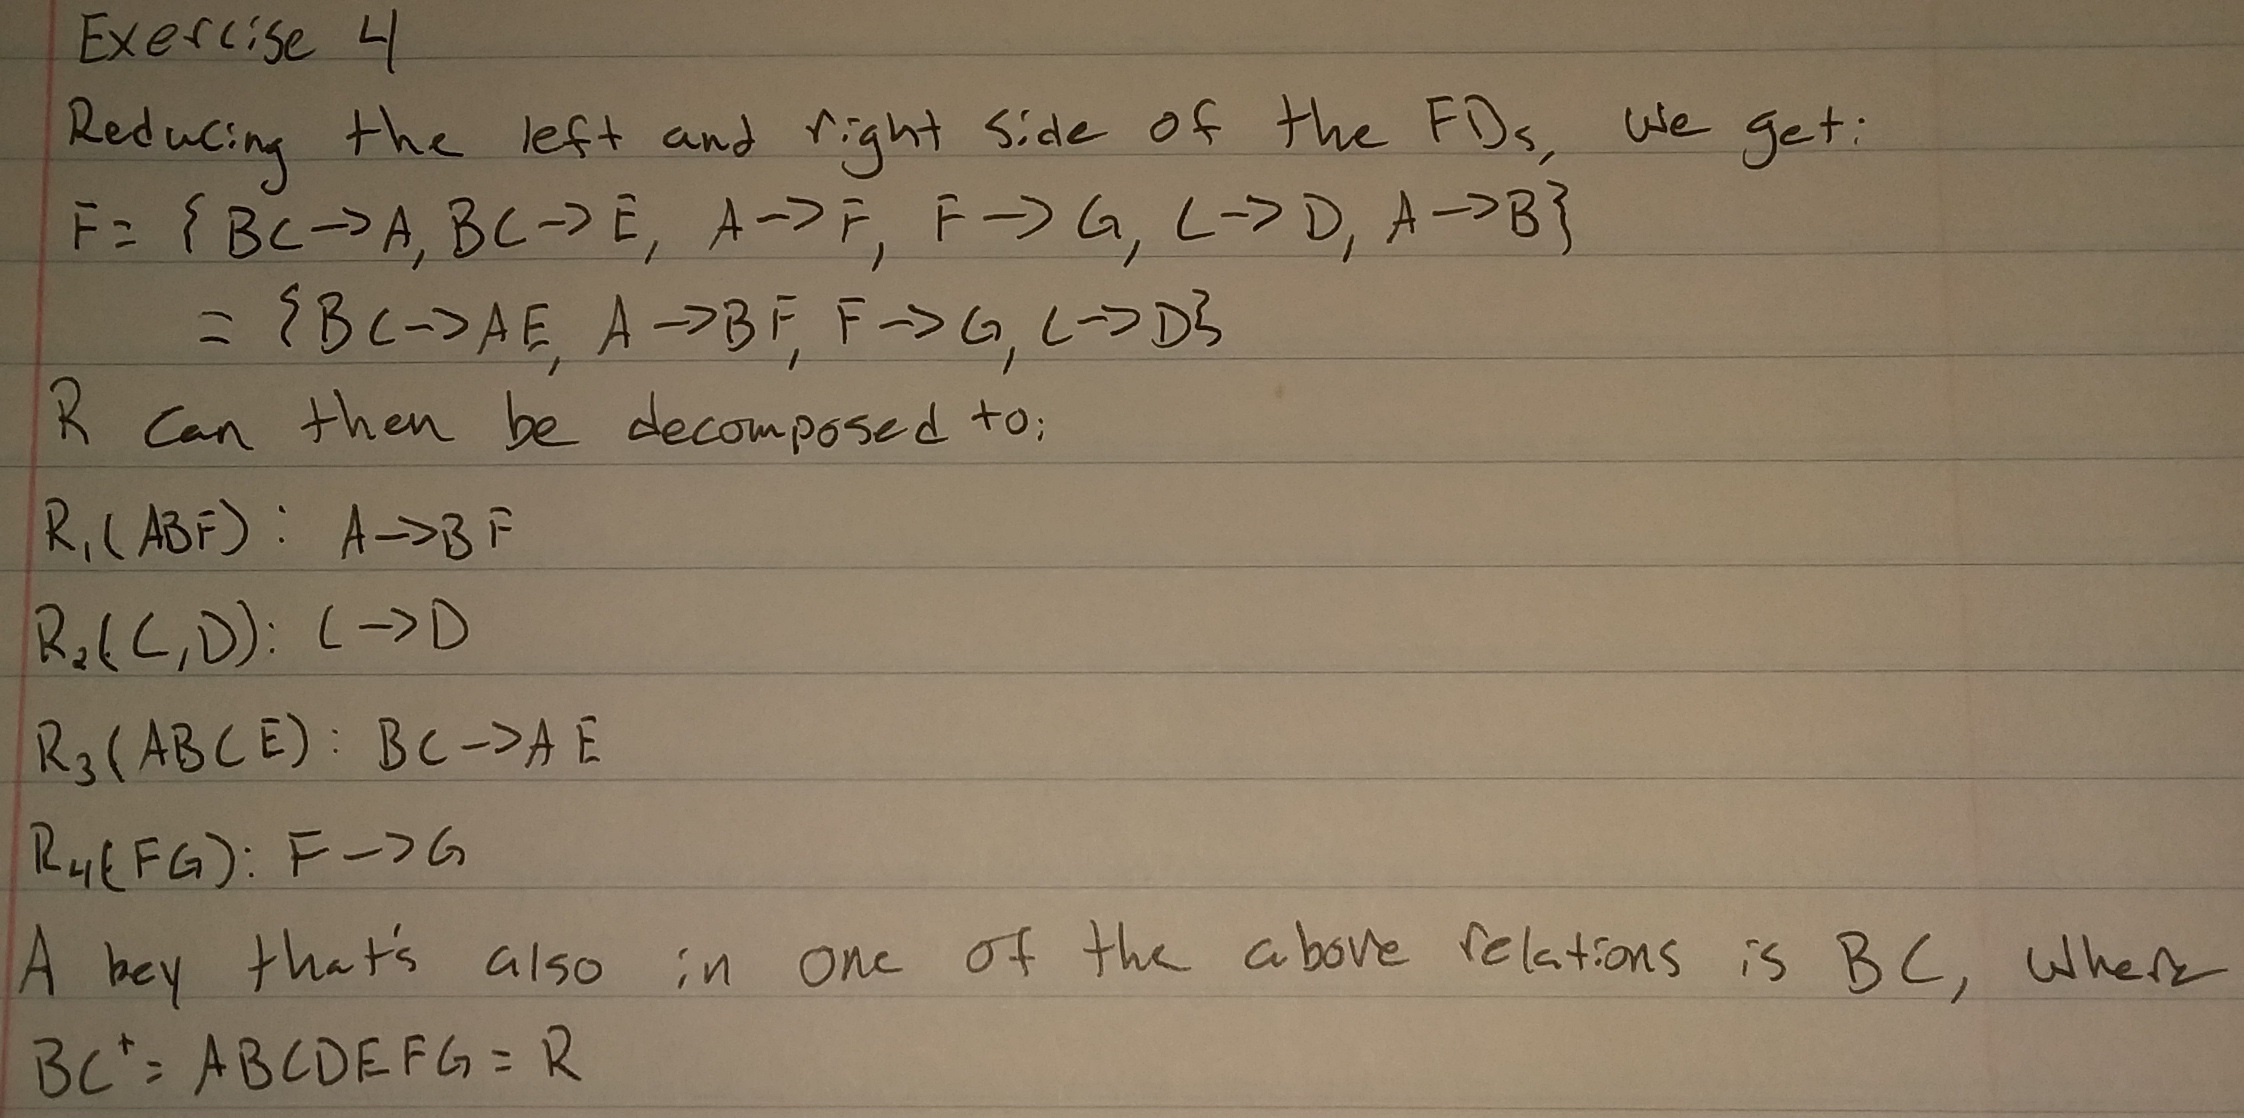 Exercise 4
Reducing the left and right side of the FDs, we get:
F = {BC->A, BC->E, A->F, F->G, C->D, A->B}
= {BC->AE, A->BF, F->G, C->D}
R can then be decomposed to:
R₁(ABF): A->BF
R₂(C,D): C->D
R₃(ABCE): BC->AE
R₄(FG): F->G
A key that's also in one of the above relations is BC, where
BC⁺ = ABCDEFG = R